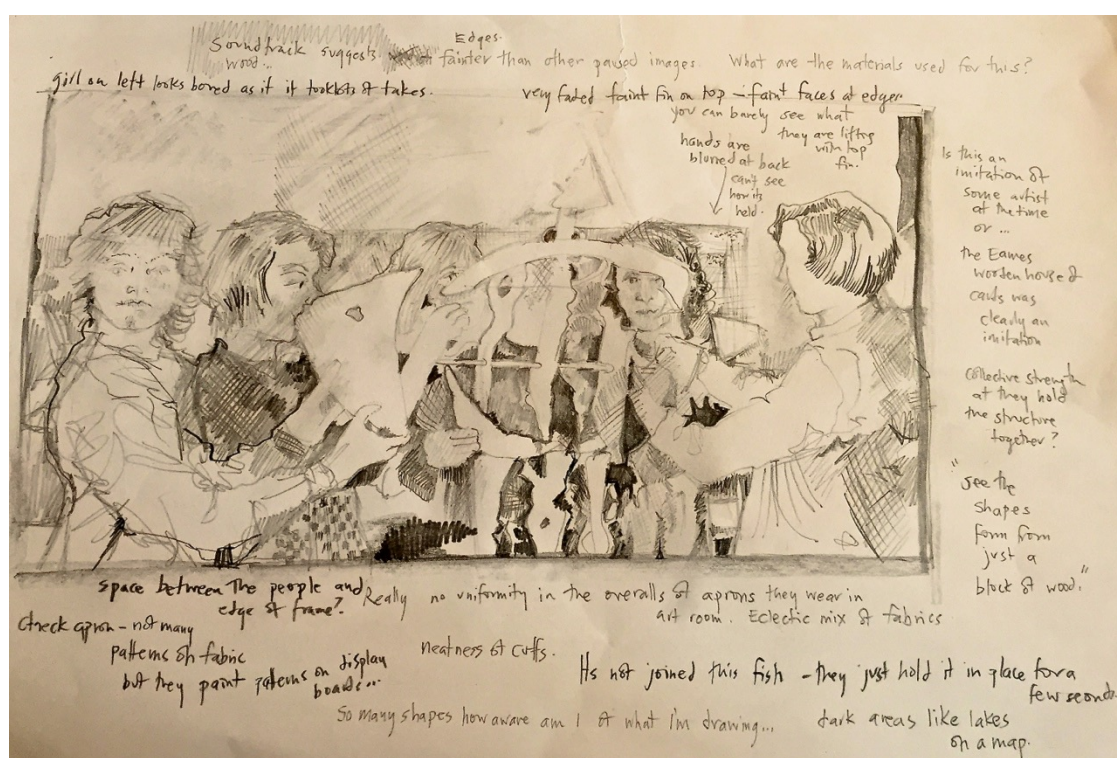 Edges.
Soundtrack suggests fainter than other paused images. What are the materials used for this?
wood...
girl on left looks bored as if it took lots of takes.
very faded faint fin on top - faint faces at edges
you can barely see what
they are lifting
with top
fin.
hands are
blurred at back
can't see
how its
held.
Is this an
imitation of
some artist
at the time
or ...
the Eames
wooden house of
cards was
clearly an
imitation
collective strength
as they hold
the structure
together?
"see the
shapes
form from
just a
block of wood."
space between the people and
edge of frame?
Really no uniformity in the overalls of aprons they wear in
art room. Eclectic mix of fabrics
check apron - not many
patterns on fabric
but they paint patterns on display
boards...
neatness of cuffs.
Its not joined this fish - they just hold it in place for a
few seconds
So many shapes how aware am I of what I'm drawing...
dark areas like lakes
on a map.